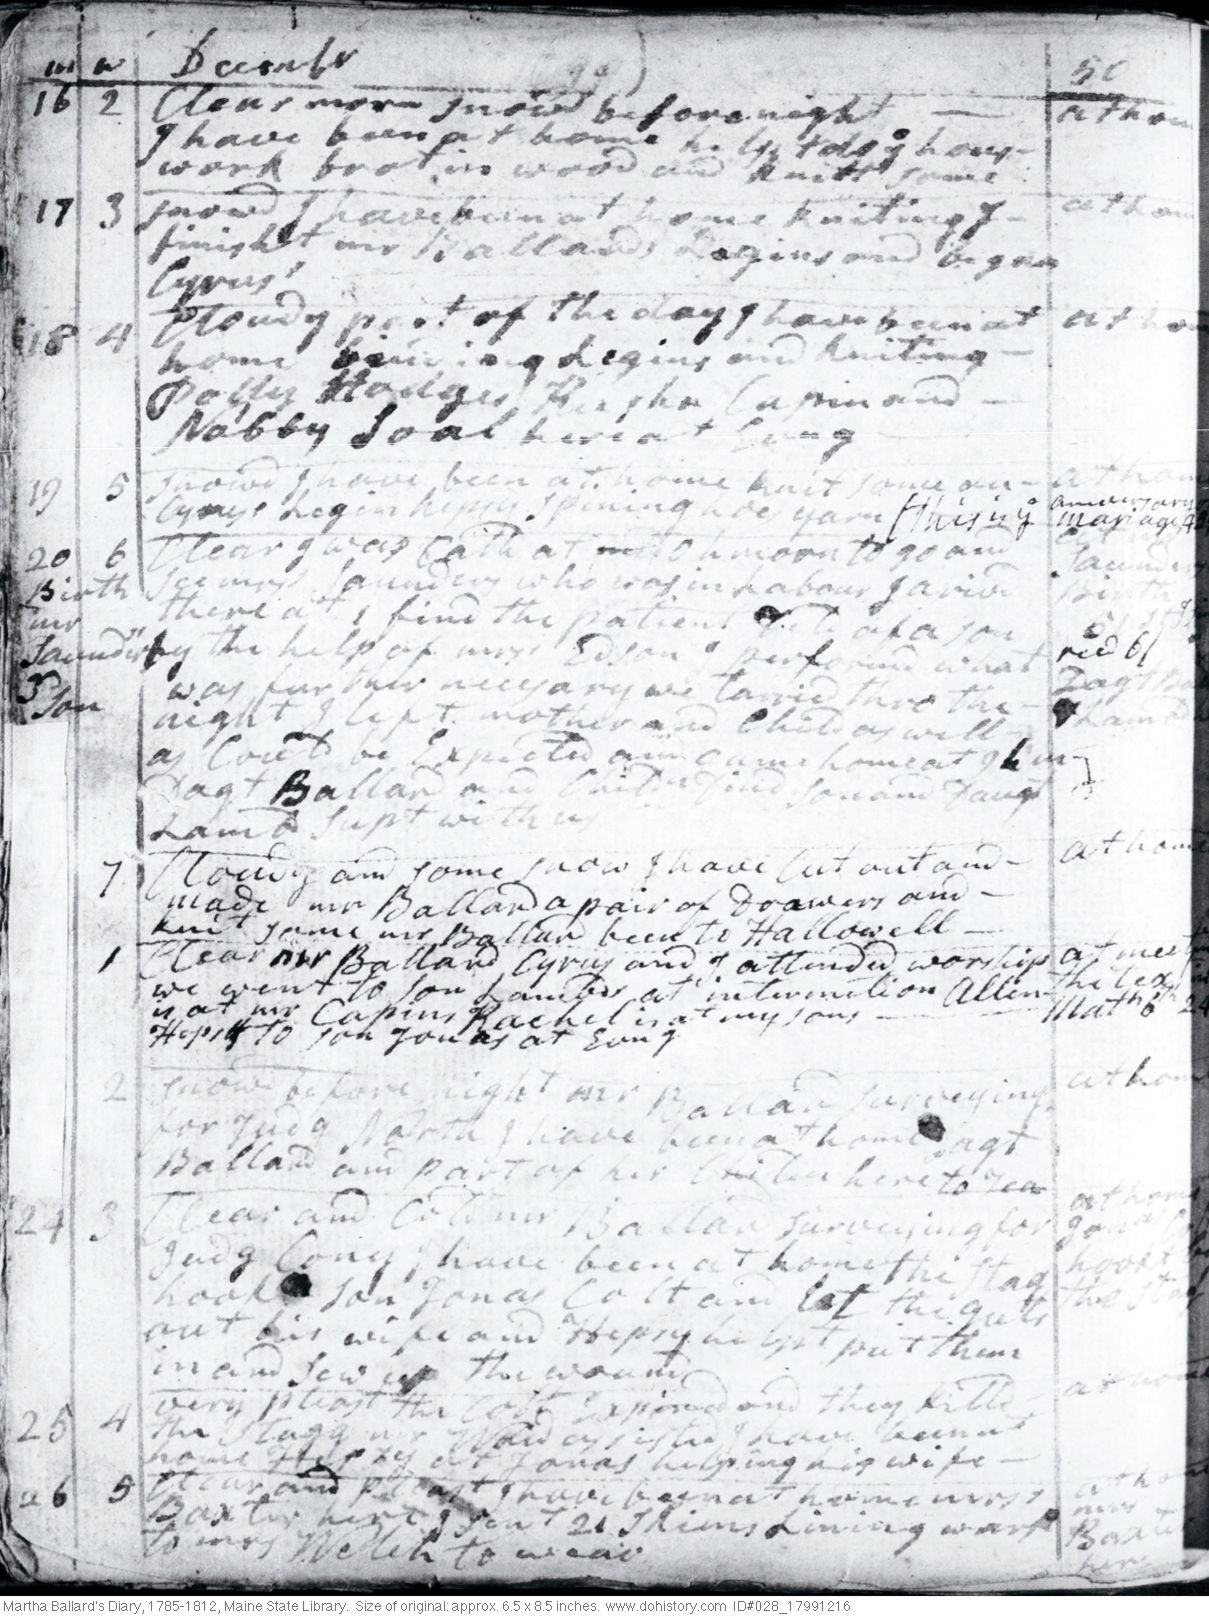 m w December 50
16 2 Clear morn snowd before night at hom
I have been at home helpt do ye hous
work brot in wood and knitt some
17 3 snowd I have been at home kniting I at hom
finisht mr Ballards Legins and began
Cyrus's
18 4 Cloudy part of the day I have been at at hom
home Legins and kniting
Dolly Hodges and
Nabby Soal here at Evng
19 5 snowd I have been at home knit some on at hom
Cyrus's Legin hepsy spining toe yarn this is ye aniversary mariage
20 6 Clear I was Calld at morn to go and
Birth see mrs Saunders who was in Labour I arivd Saunders Birth
mr there at find the patient a son
Saunders by the help of mrs Edson I performd what recd 6/
3rd Son was further necesary we tarried thro the Dagt Bal
night I left mother and Child as well Lambd
as Could be Expected and came home at
Dagt Ballard and Children son and Daugt
Lambd supt with us
7 Cloudy and some snow I have Cut out and at home
made mr Ballard a pair of Drawers and
knit some mr Ballard been to Hallowell
1 Clear mr Ballard Cyrus and I attended worship at meet
we went to son Lambds at intermition Allen the tex
is at mr Capins Rachel is at my sons Math 6 24
Hepsy to son Jonas at Evng
2 snowd before night mr Ballard surveying at hom
for Judg North I have been at home Dagt
Ballard and part of her Children here to Tea
24 3 Clear and Cold mr Ballard surveying for at home
Judg Cony I have been at home the stag Jonas
hookt son Jonas Colt and let the guts hookt
out his wife and Hepsy helpt put them the stag
in and sew up the wound
25 4 very pleast the Colt Expired and they killd at home
the stagg mr assisted I have been at
home Hepsy at Jonas helping his wife
26 5 Clear and pleast I have been at home mrs at home
Baxter here I sent 21 skeins Lining warp mrs Baxter
to mrs Welch to weav here
Martha Ballard's Diary, 1785-1812, Maine State Library. Size of original: approx. 6.5 x 8.5 inches. www.dohistory.com ID#028_17991216